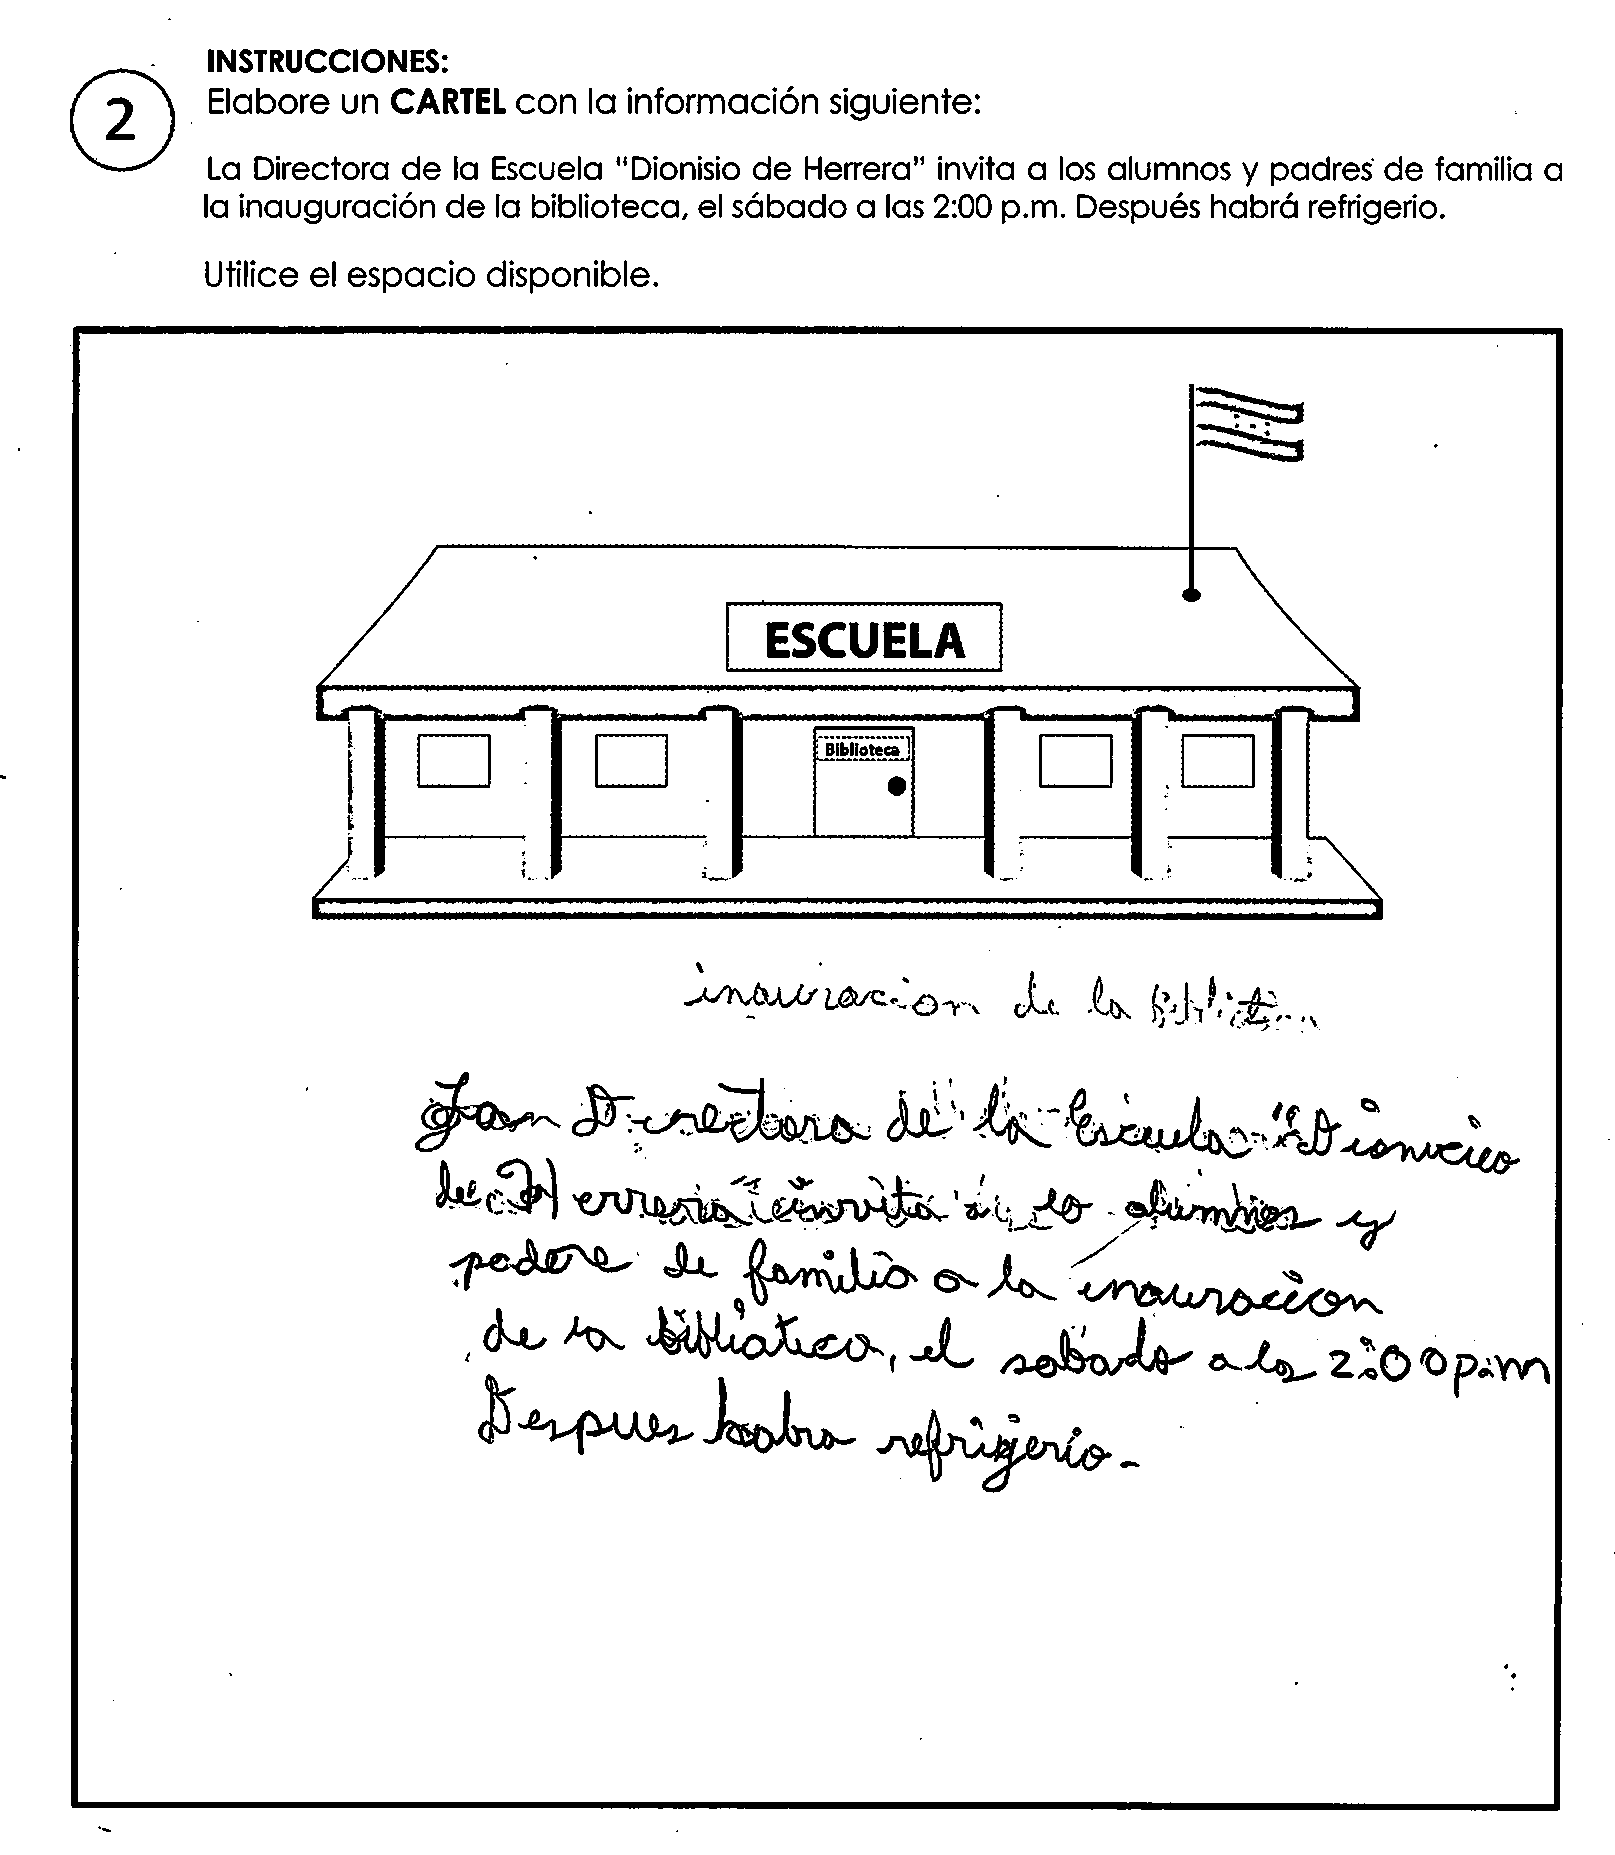 INSTRUCCIONES:
2
Elabore un CARTEL con la información siguiente:
La Directora de la Escuela "Dionisio de Herrera" invita a los alumnos y padres de familia a
la inauguración de la biblioteca, el sábado a las 2:00 p.m. Después habrá refrigerio.
Utilice el espacio disponible.
ESCUELA
Biblioteca
inauracion de la
Directora de la Escuela "Dionicio
de Herrera" invita a lo alumnos y
padere de familia a la inauracion
de la biblioteca, el sabado a las 2:00 p.m
Despues habra refrigerio.